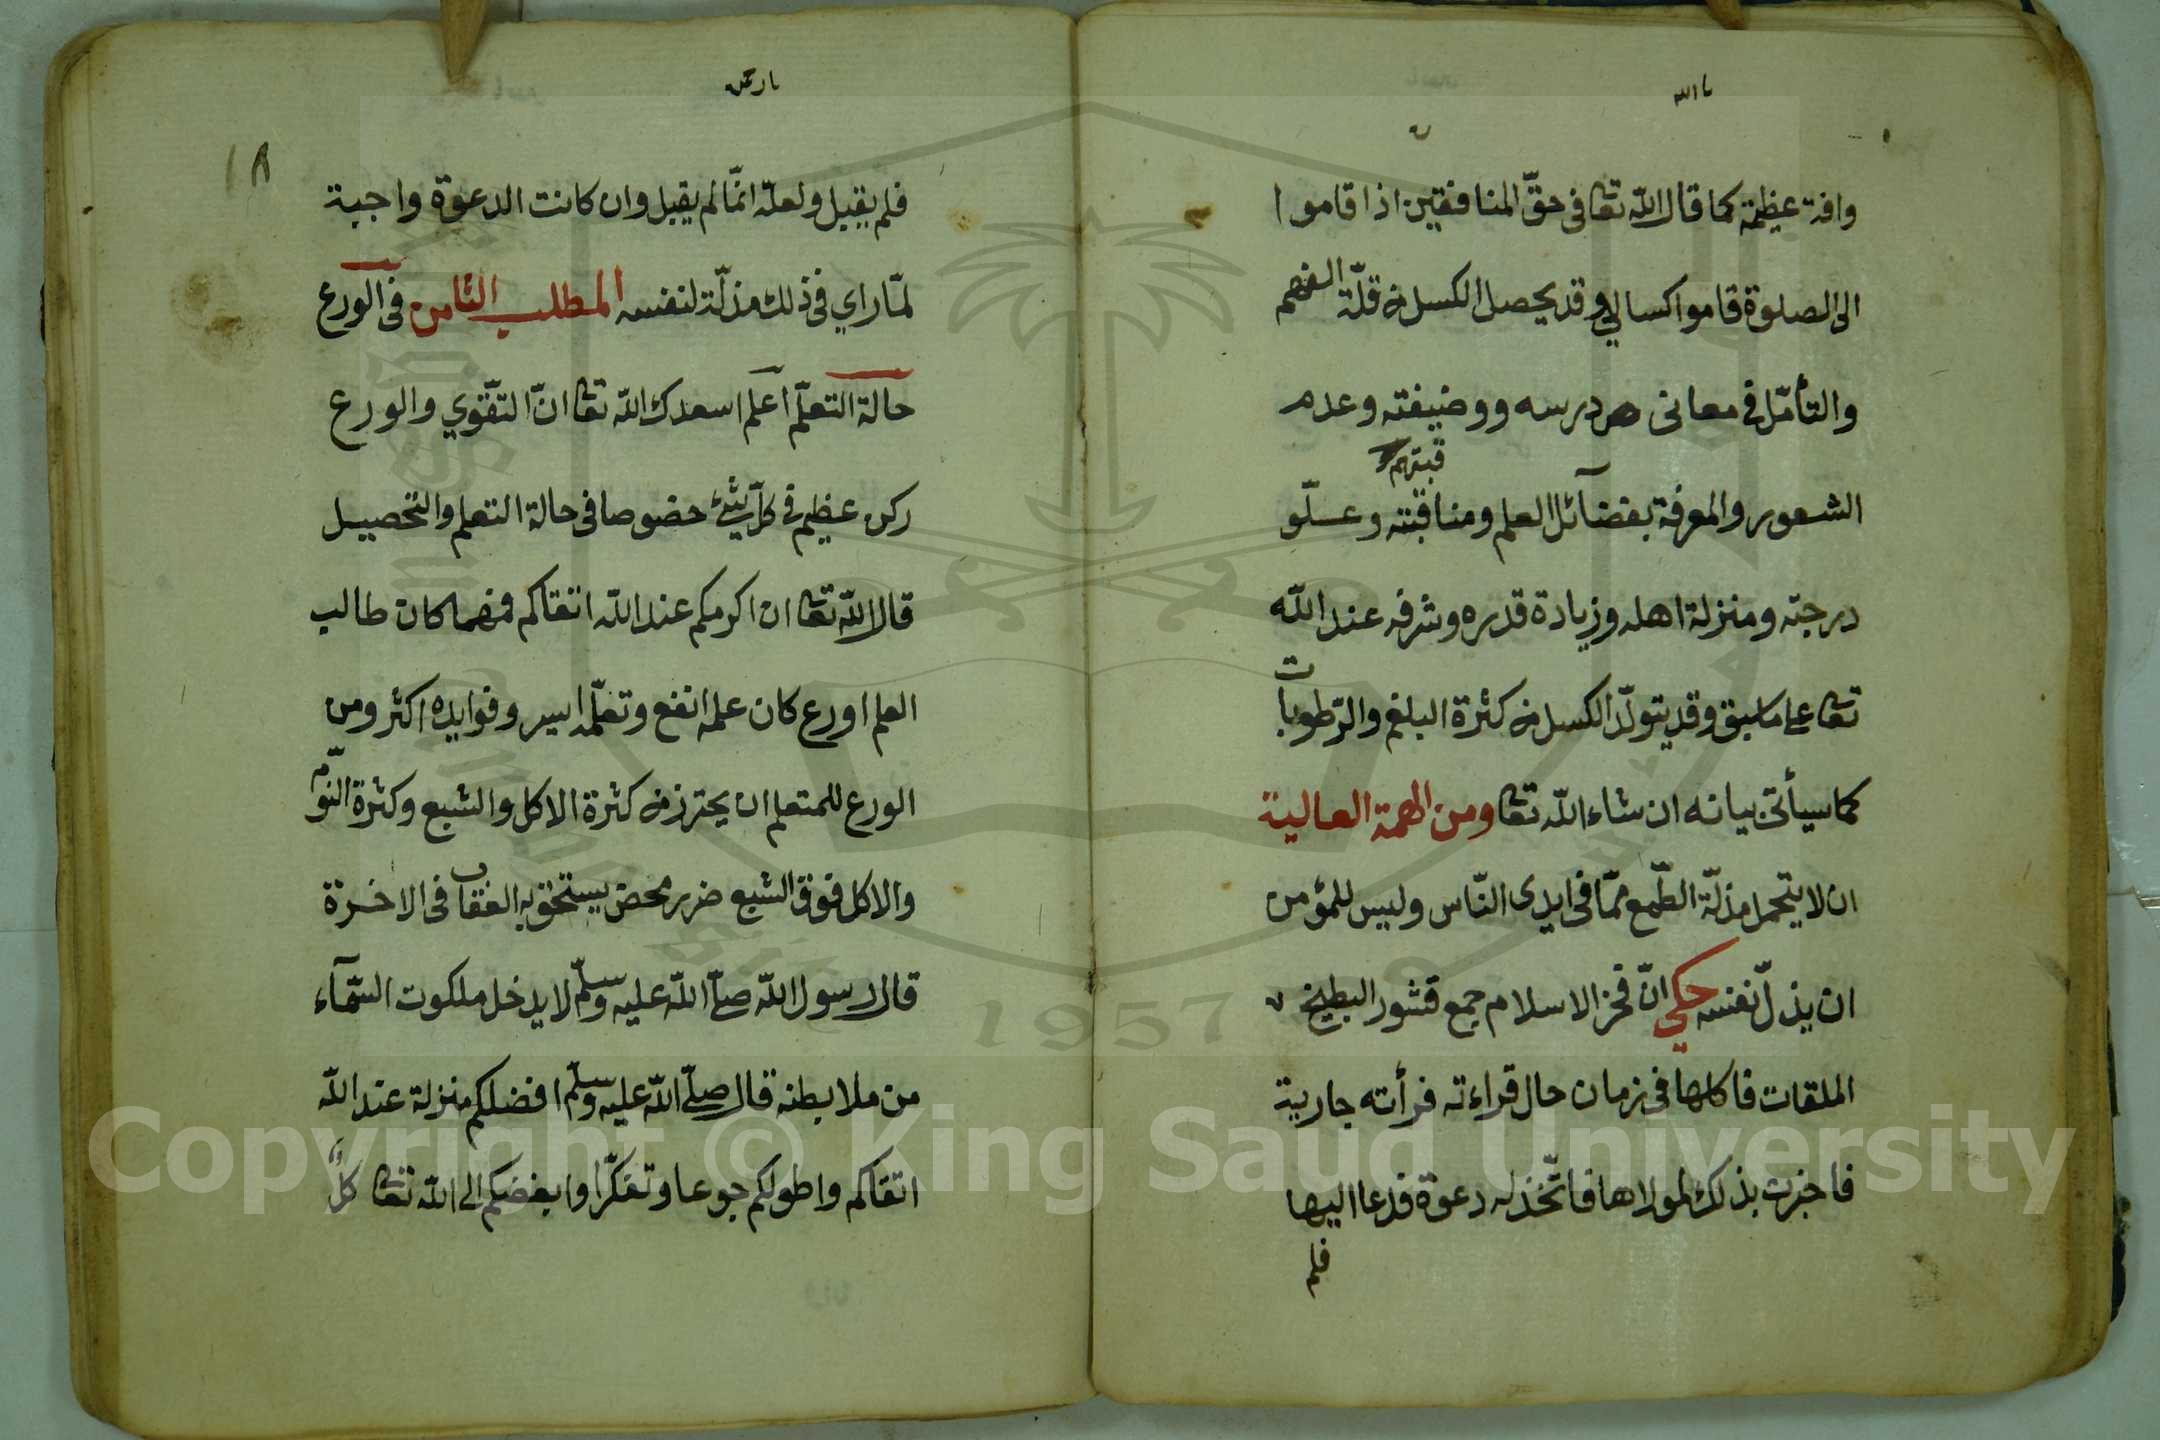 يا الله
وافة عظيمة كما قال الله تعا فى حقّ المنافقين اذا قاموا
الى الصلوة قاموا كسالي وقد يحصل الكسل من قلّة الفهم
والتأمّل فى معانى درسه ووضيفته وعدم
قبتهم
الشعور والمعرفة بفضآئل العلم ومناقبته وعلّو
درجته ومنزلة اهله وزيادة قدره وشرفه عند الله
تعا على ما سبق وقد يتولّد الكسل من كثرة البلغم والرّطوبات
كما سيأتى بيانه ان شاء الله تعا ومن الهمة العالية
ان لا يتحمل مذلّة الطّمع ممّا فى ايدى النّاس وليس للمؤمن
ان يذلّ نفسه حكي انّ فخر الاسلام جمع قشور البطيخ
الملقات فاكلها فى زمان حال قراءته فرأته جارية
فاخبرت بذلك لمولاها فاتّخذ له دعوة فدعا اليها
فلم
١٨
فلم يقبل ولعلّه انّما لم يقبل وان كانت الدعوة واجبة
لمّا راي فى ذلك مذلّة لنفسه المطلب الثامن فى الورع
حالة التعلّم اعلم اسعدك الله تعا انّ التقوي والورع
ركن عظيم فى كلّ شئ خصوصا فى حالة التعلم والتحصيل
قال الله تعا ان اكرمكم عند الله اتقاكم فمهما كان طالب
العلم اورع كان علمه انفع وتعلّمه ايسر وفوايده اكثر ومن
الورع للمتعلم ان يحترز من كثرة الاكل والشبع وكثرة النوم
والاكل فوق الشبع ضرر محض يستحق به العقاب فى الاخرة
قال رسول الله صلّى الله عليه وسلّم لا يدخل ملكوت السّمآء
من ملا بطنه قال صلّى الله عليه وسلّم افضلكم منزلة عند الله
اتقاكم واطولكم جوعا وتفكّرا وابغضكم الى الله تعا كلّ
Copyright © King Saud University
1957